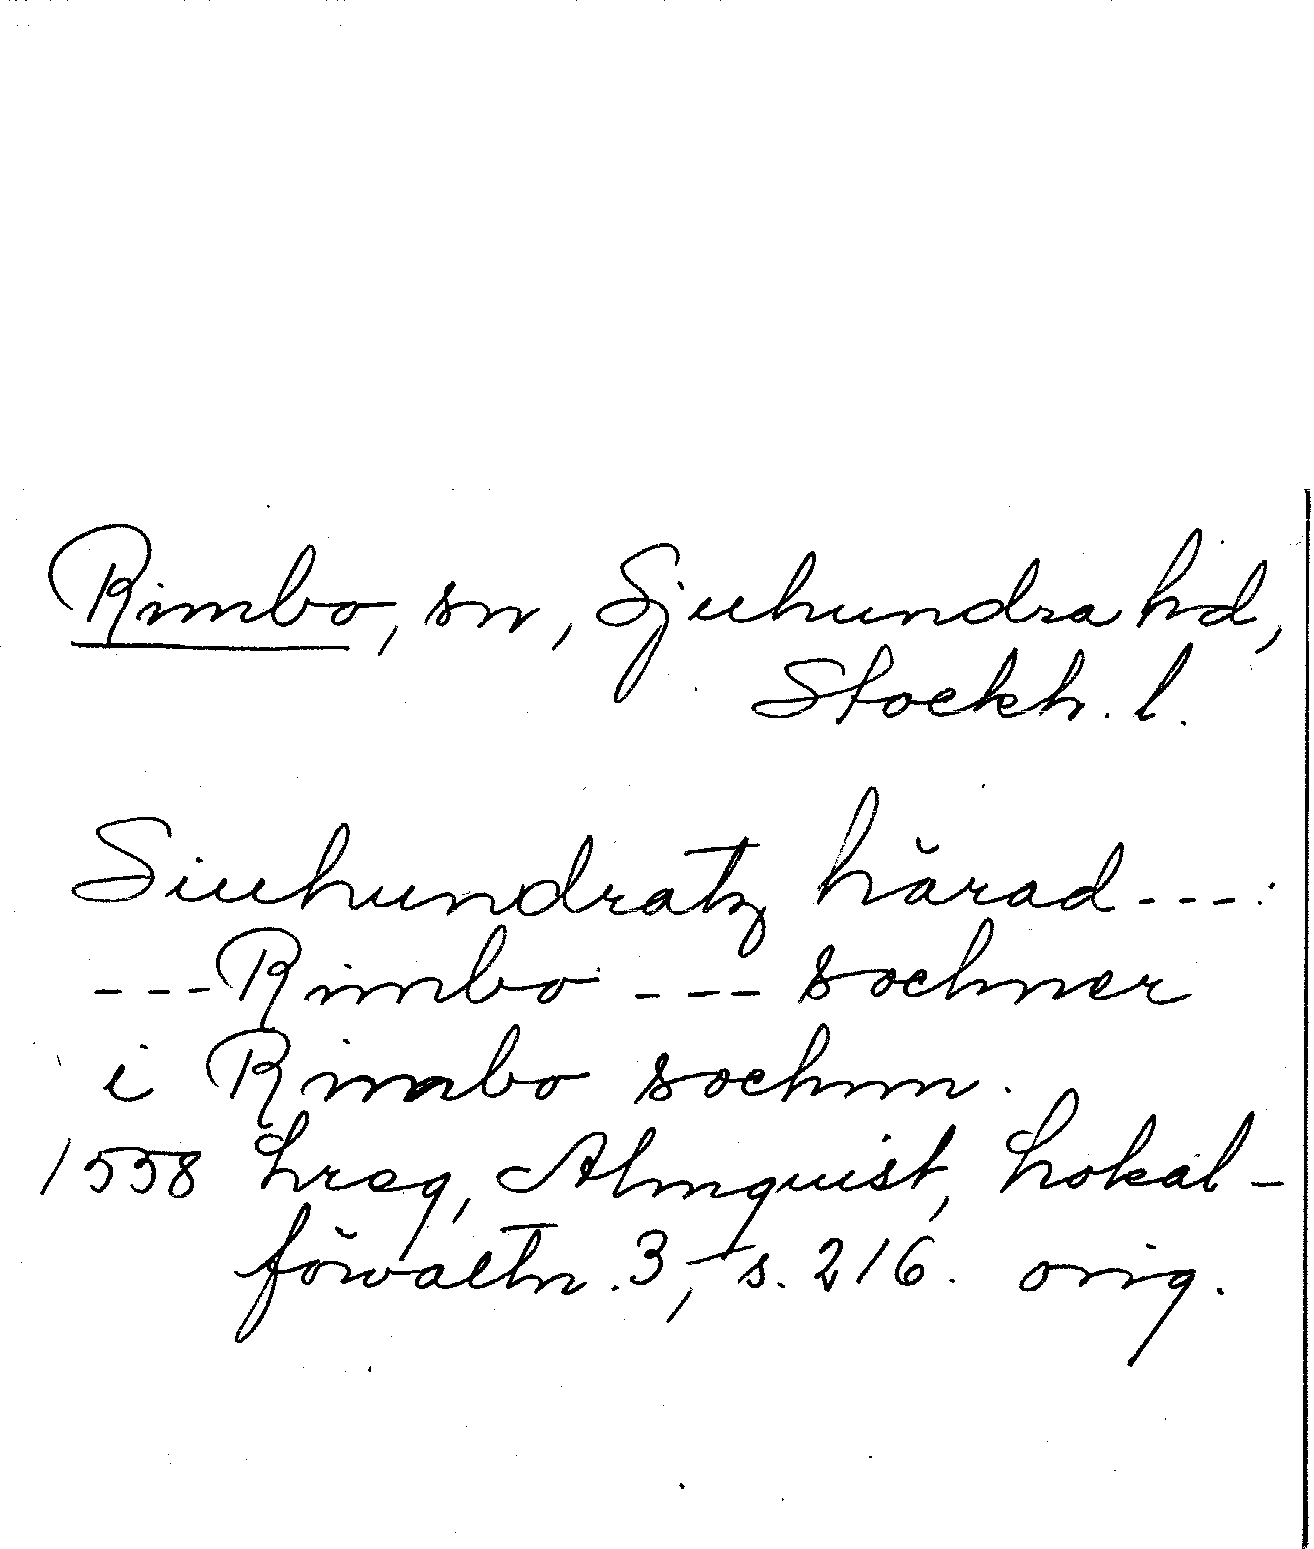 Rimbo, sn, Sjuhundra hd,
Stockh. l.
Siuhundratz härad ---:
---Rimbo --- sochner
i Rimbo sochnn.
1558 Lreg, Almquist, Lokal-
förvaltn. 3, s. 216. orig.